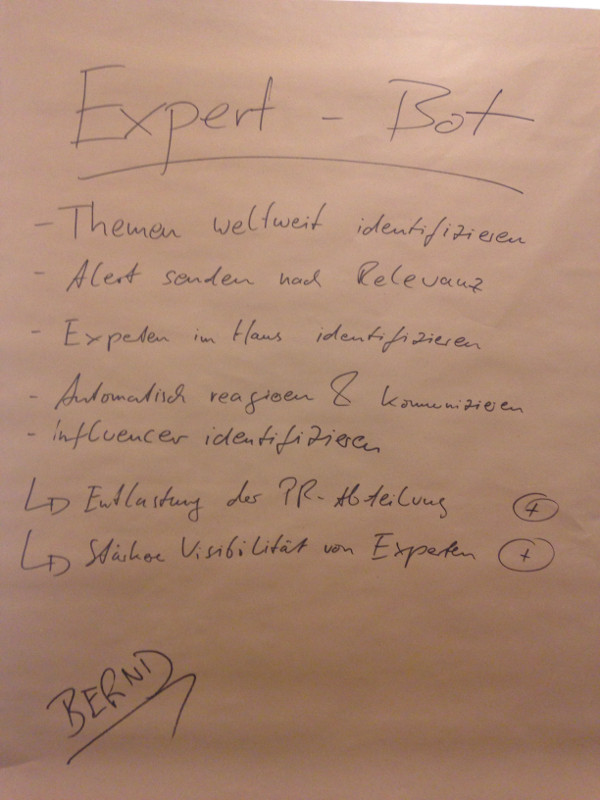 Expert - Bot
- Themen weltweit identifizieren
- Alert senden nach Relevanz
- Experten im Haus identifizieren
- Automatisch reagieren & kommunizieren
- Influencer identifizieren
↳ Entlastung der PR-Abteilung (+)
↳ Stärkere Visibilität von Experten (+)
BERND